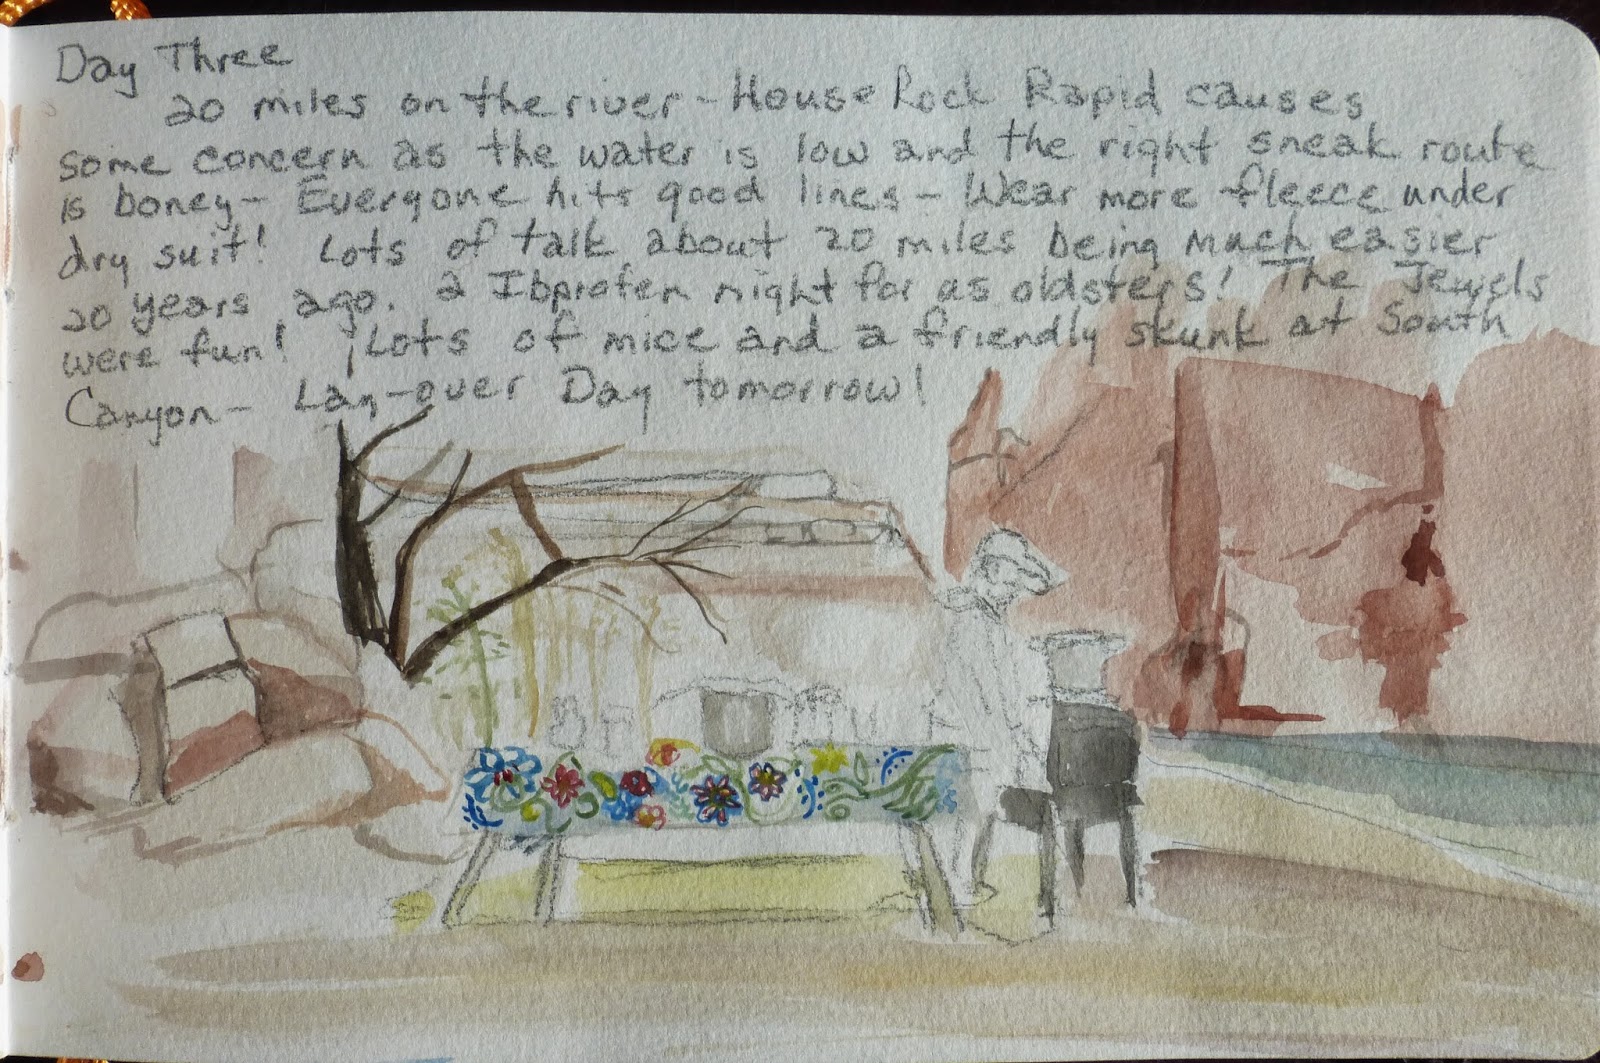 Day Three
20 miles on the river - House Rock Rapid causes
some concern as the water is low and the right sneak route
is boney - Everyone hits good lines - Wear more fleece under
dry suit! Lots of talk about 20 miles being much easier
20 years ago. a Ibprofen night for as oldsters! The Jewels
were fun! Lots of mice and a friendly skunk at South
Canyon - Lay-over Day tomorrow!